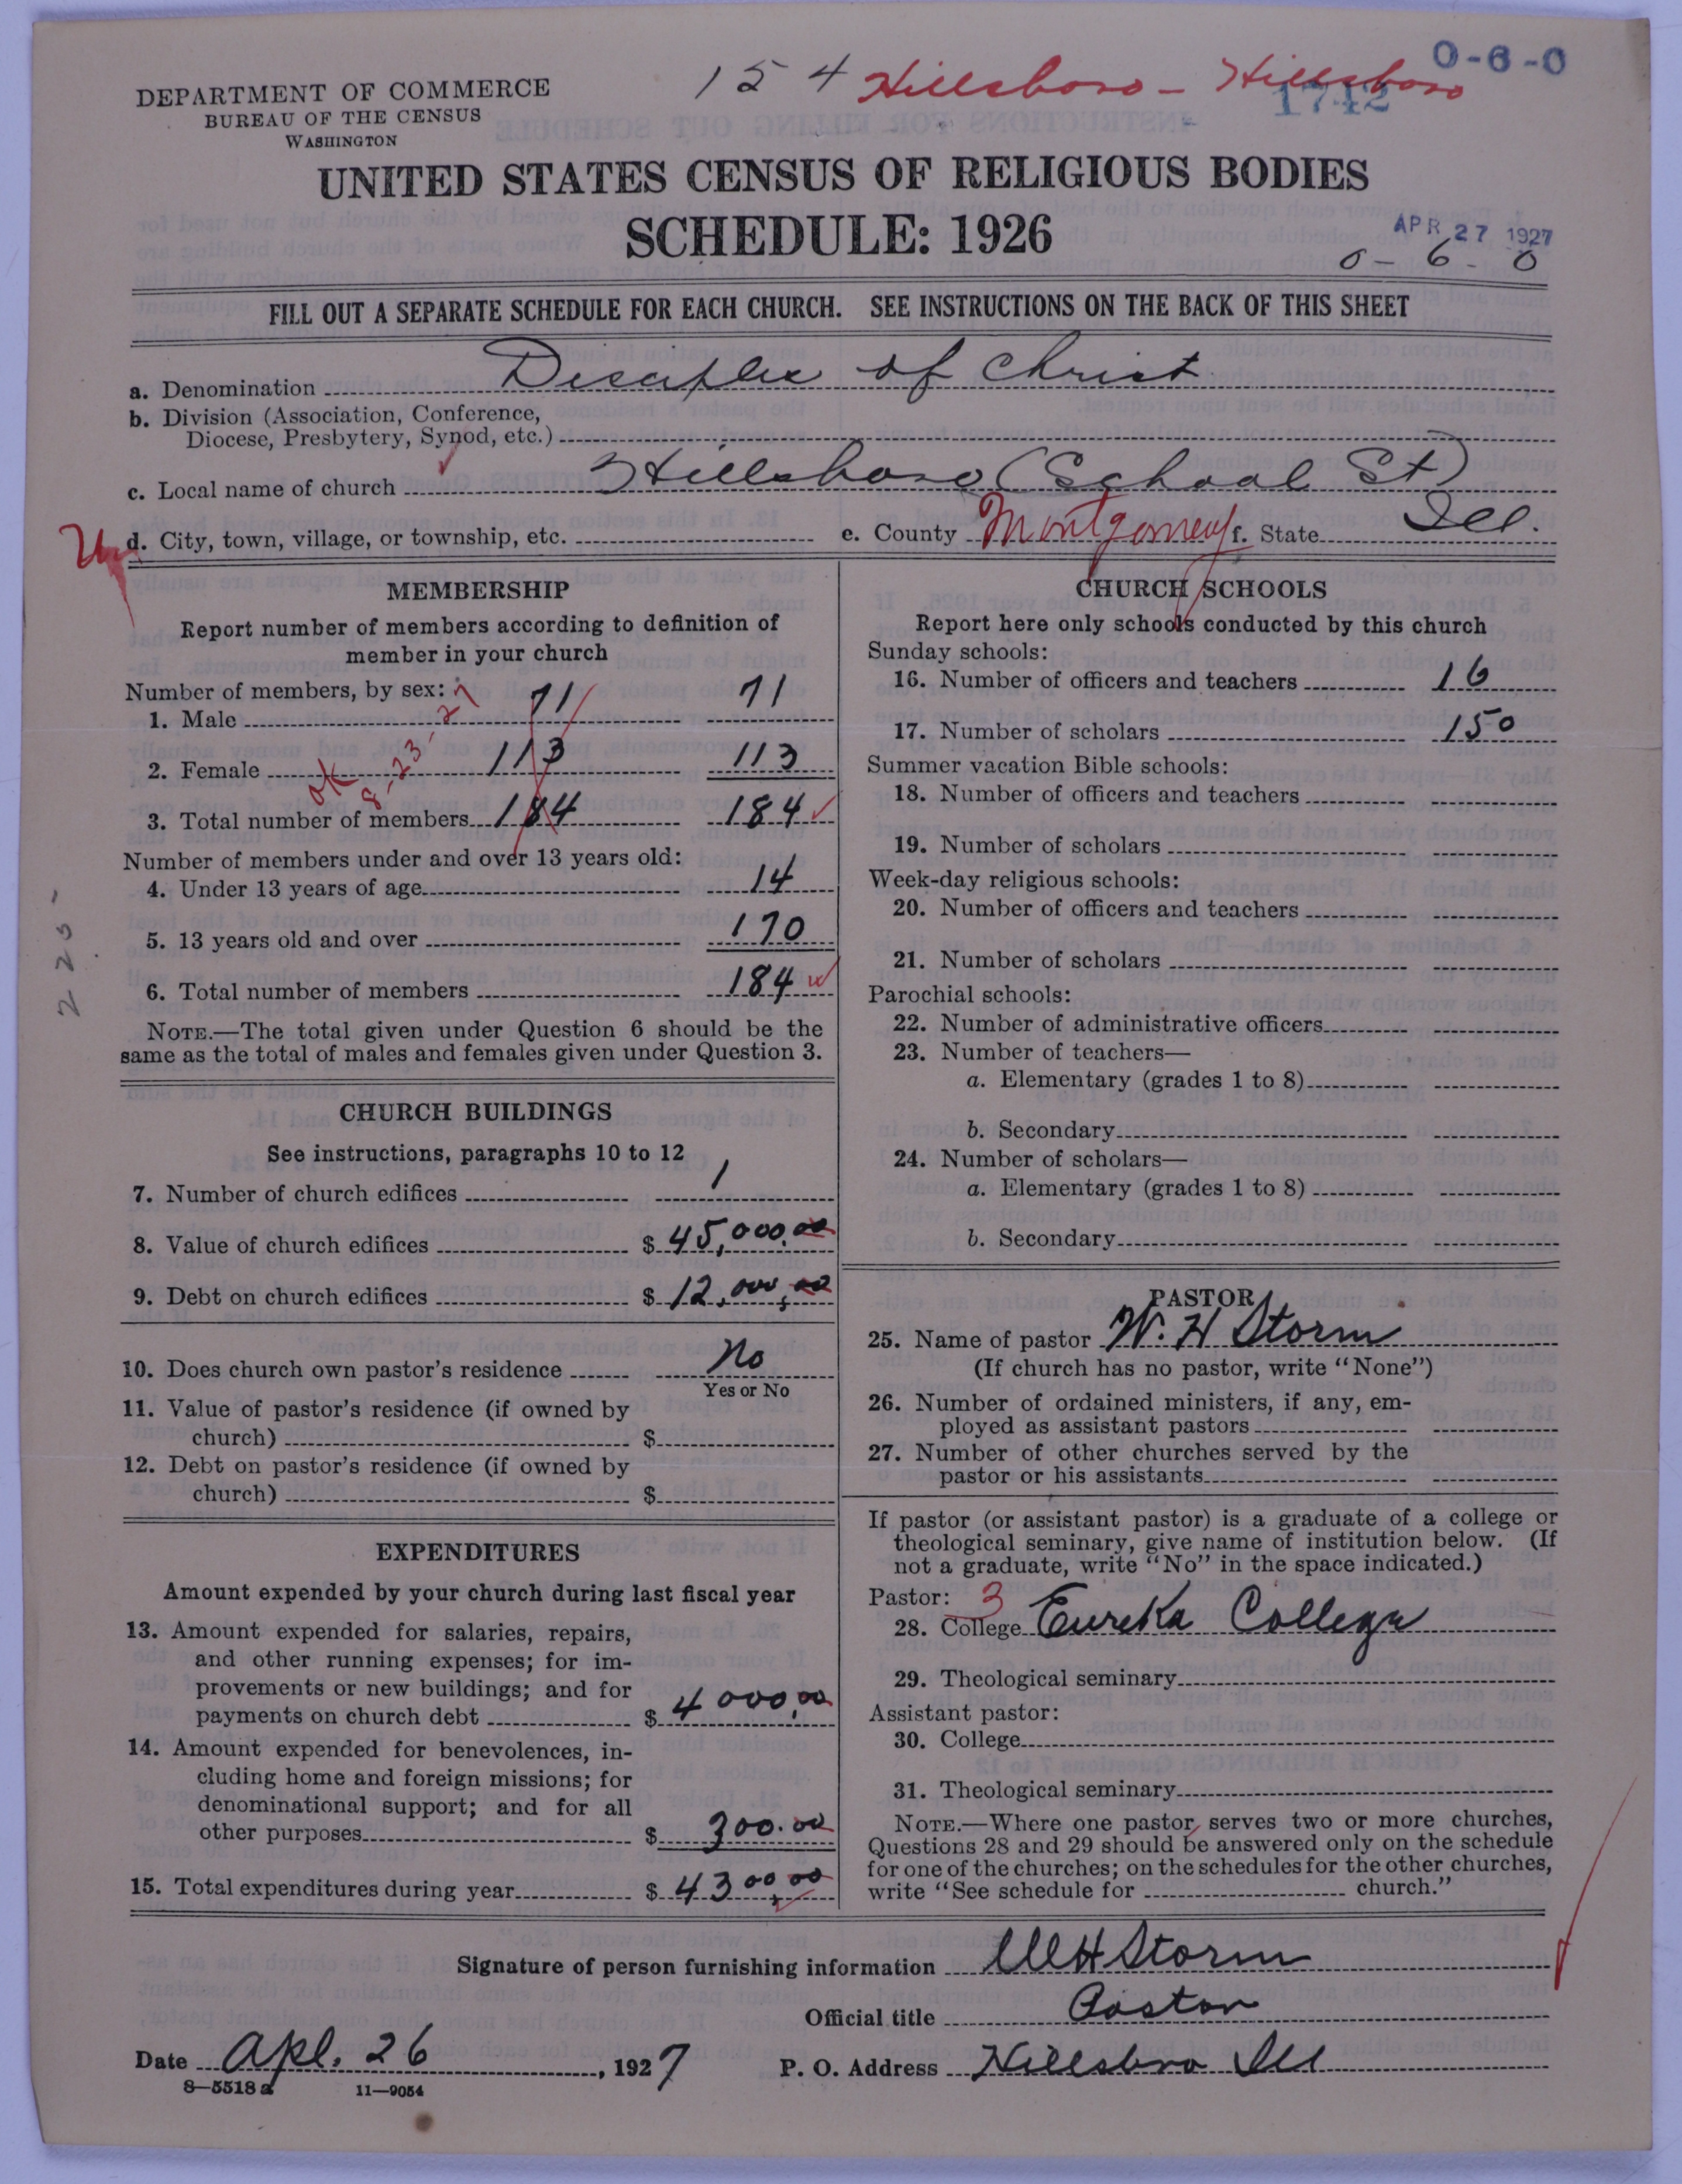 0-6-0
154 Hillsboro - Hillsboro
1742
DEPARTMENT OF COMMERCE
BUREAU OF THE CENSUS
WASHINGTON
UNITED STATES CENSUS OF RELIGIOUS BODIES
SCHEDULE: 1926
APR 27 1927
0-6-0
FILL OUT A SEPARATE SCHEDULE FOR EACH CHURCH. SEE INSTRUCTIONS ON THE BACK OF THIS SHEET
a. Denomination Disciples of Christ
b. Division (Association, Conference,
Diocese, Presbytery, Synod, etc.)
c. Local name of church Hillsboro (School St)
d. City, town, village, or township, etc. e. County Montgomery f. State Ill.
MEMBERSHIP
Report number of members according to definition of
member in your church
Number of members, by sex:
1. Male 71 71
2. Female 113 113
OK 8-23-27
3. Total number of members 184 184
Number of members under and over 13 years old:
4. Under 13 years of age 14
5. 13 years old and over 170
6. Total number of members 184
NOTE.—The total given under Question 6 should be the
same as the total of males and females given under Question 3.
CHURCH BUILDINGS
See instructions, paragraphs 10 to 12
7. Number of church edifices 1
8. Value of church edifices $ 45,000.00
9. Debt on church edifices $ 12,000,00
10. Does church own pastor's residence No
Yes or No
11. Value of pastor's residence (if owned by
church) $
12. Debt on pastor's residence (if owned by
church) $
EXPENDITURES
Amount expended by your church during last fiscal year
13. Amount expended for salaries, repairs,
and other running expenses; for im-
provements or new buildings; and for
payments on church debt $ 4000.00
14. Amount expended for benevolences, in-
cluding home and foreign missions; for
denominational support; and for all
other purposes $ 300.00
15. Total expenditures during year $ 4300.00
CHURCH SCHOOLS
Report here only schools conducted by this church
Sunday schools:
16. Number of officers and teachers 16
17. Number of scholars 150
Summer vacation Bible schools:
18. Number of officers and teachers
19. Number of scholars
Week-day religious schools:
20. Number of officers and teachers
21. Number of scholars
Parochial schools:
22. Number of administrative officers
23. Number of teachers—
a. Elementary (grades 1 to 8)
b. Secondary
24. Number of scholars—
a. Elementary (grades 1 to 8)
b. Secondary
PASTOR
25. Name of pastor W. H Storm
(If church has no pastor, write "None")
26. Number of ordained ministers, if any, em-
ployed as assistant pastors
27. Number of other churches served by the
pastor or his assistants
If pastor (or assistant pastor) is a graduate of a college or
theological seminary, give name of institution below. (If
not a graduate, write "No" in the space indicated.)
Pastor: 3
28. College Eureka College
29. Theological seminary
Assistant pastor:
30. College
31. Theological seminary
NOTE.—Where one pastor serves two or more churches,
Questions 28 and 29 should be answered only on the schedule
for one of the churches; on the schedules for the other churches,
write "See schedule for church."
Signature of person furnishing information WH Storm
Official title Pastor
Date Apl. 26, 1927 P. O. Address Hillsboro Ill
8—5518a 11—9054